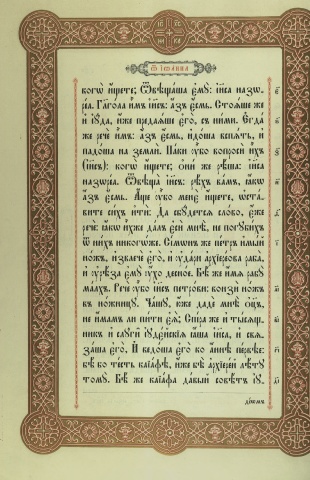 Ѿ Іѡанна
когѡ и҆́щете; Ѿвѣща́ша є҆мꙋ̀: і҆и҃са назѡ-
ре́а. Гл҃гола и҆̀мъ і҆и҃съ: а҆́зъ є҆́смь. Стоѧ́ше же
и҆ і҆ꙋ́да, и҆́же предаѧ́ше є҆го̀, съ ни́ми. Є҆гда́
же речѐ и҆̀мъ: а҆́зъ є҆́смь, и҆до́ша вспѧ́ть, и҆
падо́ша на землѝ. Па́ки ᲂу҆̀бо вопросѝ и҆̀хъ
(і҆и҃съ): когѡ̀ и҆́щете; ѻ҆ни́ же рѣ́ша: і҆и҃са
назѡре́а. Ѿвѣща̀ і҆и҃съ: рѣ́хъ ва́мъ, ꙗ҆́кѡ
а҆́зъ є҆́смь. А҆́ще ᲂу҆̀бо менѐ и҆́щете, ѡ҆ста́-
вите си́хъ и҆тѝ: Да сбꙋ́детсѧ сло́во, є҆́же
речѐ: ꙗ҆́кѡ и҆̀хже да́лъ є҆сѝ мнѣ̀, не погꙋби́хъ
ѿ ни́хъ никого́же. Сі́мѡнъ же пе́тръ и҆мы́й
но́жъ, и҆звлечѐ є҆го̀, и҆ ᲂу҆да́ри а҆рхїере́ова раба̀,
и҆ ᲂу҆рѣ́за є҆мꙋ̀ ᲂу҆́хо десно́е. Бѣ́ же и҆́мѧ рабꙋ̀
ма́лхъ. Речѐ ᲂу҆̀бо і҆и҃съ петро́ви: вонзѝ но́жъ
въ но́жницꙋ. Ча́шꙋ, ю҆́же дадѐ мнѣ̀ ѻ҆ц҃ъ,
не и҆́мамъ ли пи́ти є҆ѧ̀; Спі́ра же и҆ ты́сѧщ-
никъ и҆ слꙋги̑ і҆ꙋде́йскїѧ ꙗ҆́ша і҆и҃са, и҆ свѧ-
за́ша є҆го̀, И҆ ведо́ша є҆го̀ ко а҆́ннѣ пе́рвѣе:
бѣ́ бо те́сть каїа́фѣ, и҆́же бѣ̀ а҆рхїере́й лѣ́тꙋ
томꙋ̀. Бѣ́ же каїа́фа да́вый совѣ́тъ і҆ꙋ-
де́ѡмъ